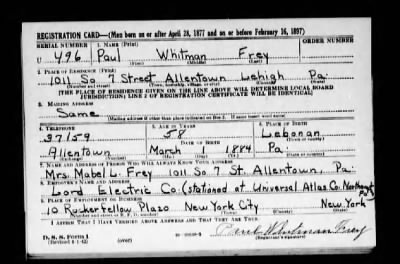 REGISTRATION CARD—(Men born on or after April 28, 1877 and on or before February 16, 1897)
SERIAL NUMBER 1. NAME (Print) ORDER NUMBER
U 496 Paul Whitman Frey
(First) (Middle) (Last)
2. PLACE OF RESIDENCE (Print)
1011 So 7 Street Allentown Lehigh Pa.
(Number and street) (Town, township, village, or city) (County) (State)
[THE PLACE OF RESIDENCE GIVEN ON THE LINE ABOVE WILL DETERMINE LOCAL BOARD
JURISDICTION; LINE 2 OF REGISTRATION CERTIFICATE WILL BE IDENTICAL]
3. MAILING ADDRESS
Same
[Mailing address if other than place indicated on line 2. If same insert word same]
4. TELEPHONE 5. AGE IN YEARS 6. PLACE OF BIRTH
37159 58 Lebonan
DATE OF BIRTH (Town or county)
Allentown March 1 1884 Pa.
(Exchange) (Number) (Mo.) (Day) (Yr.) (State or country)
7. NAME AND ADDRESS OF PERSON WHO WILL ALWAYS KNOW YOUR ADDRESS
Mrs. Mabel L. Frey 1011 So. 7 St. Allentown, Pa.
8. EMPLOYER'S NAME AND ADDRESS
Lord Electric Co. (stationed at Universal Atlas Co.
9. PLACE OF EMPLOYMENT OR BUSINESS
10 Rockerfellow Plaza New York City New York
(Number and street or R. F. D. number) (Town) (County) (State)
I AFFIRM THAT I HAVE VERIFIED ABOVE ANSWERS AND THAT THEY ARE TRUE.
D. S. S. Form 1
(Revised 4-1-42) (over) Paul Whitman Frey
(Registrant's signature)